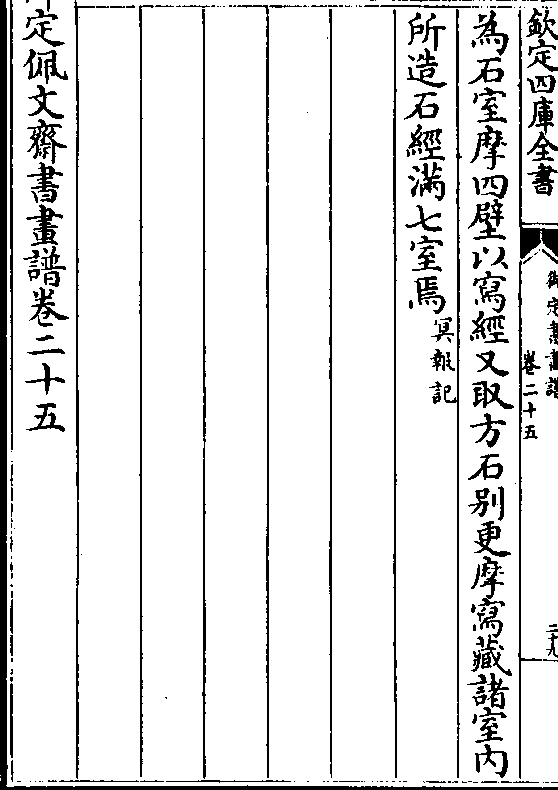 欽定四庫全書
御定書畫譜
卷二十五
二十九
為石室摩四壁以寫經又取方石别更摩寫藏諸室内
所造石經滿七室焉冥報記
定佩文齋書畫譜卷二十五